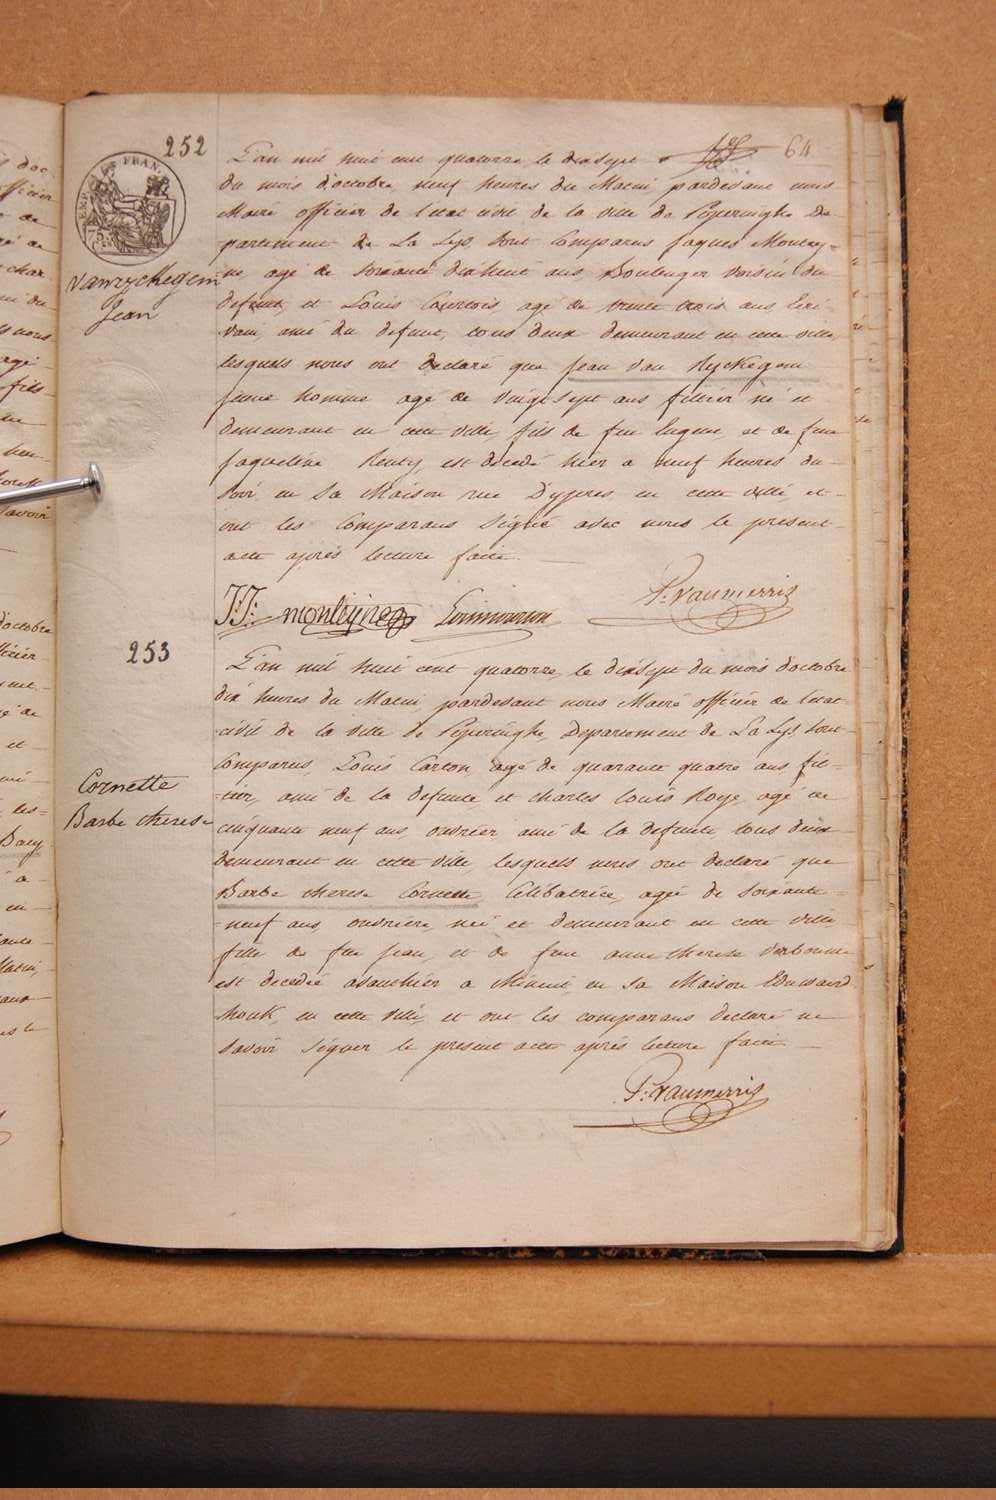 252
64
EMP. FRAN.
L'an mil huit cent quatorze le dixsept
du mois d'octobre neuf heures du Matin pardevant nous
Maire officier de l'etat civil de la ville de Poperinghe De-
-partement de La Lys, sont Comparus Jaques Monteny-
-ne, agé de soixante dixhuit ans Boulenger voisin du
defunt, et Louis Courtois, agé de trente trois ans, Ecri-
-vain, amé du defunt, tous deux demeurant en cette ville,
lesquels nous ont declaré que Jean van Ryckegem
jeune homme agé de vingtsept ans filtier né et
demeurant en cette ville, fils de feu Eugene, et de feue
Jaqueline Renty, est décedé hier a neuf heures du
soir, en sa Maison rue D'ypres en cette ville et
ont les Comparans Signé avec nous le present
acte après lecture faite.
Vanryckegem
Jean
J:J: monteyne
P: vaumerris
253
L'an mil huit cent quatorze, le dixsept du mois d'octobre
dix heures du Matin pardevant nous Maire officier de l'etat
civil de la ville de Poperinghe, Departement de La Lys sont
Comparus, Louis Carton, agé de quarante quatre ans fil-
-tier, amé de la defunte et Charles Louis Roye, agé de
cinquante neuf ans, ouvrier, amé de la defunte tous deux
demeurant en cette ville, lesquels nous ont declaré que
Barbe therese Cornette Celibatrice, agé de soixante
-neuf ans ouvrière, neé et demeurant en cette ville,
fille de feu Jean, et de feue anne therese
est decedée avanthier a Minuit, en sa Maison
houk, en cette ville, et ont les comparans declaré ne
savoir Signer le present acte après lecture faite.
Cornette
Barbe therese
P: vaumerris